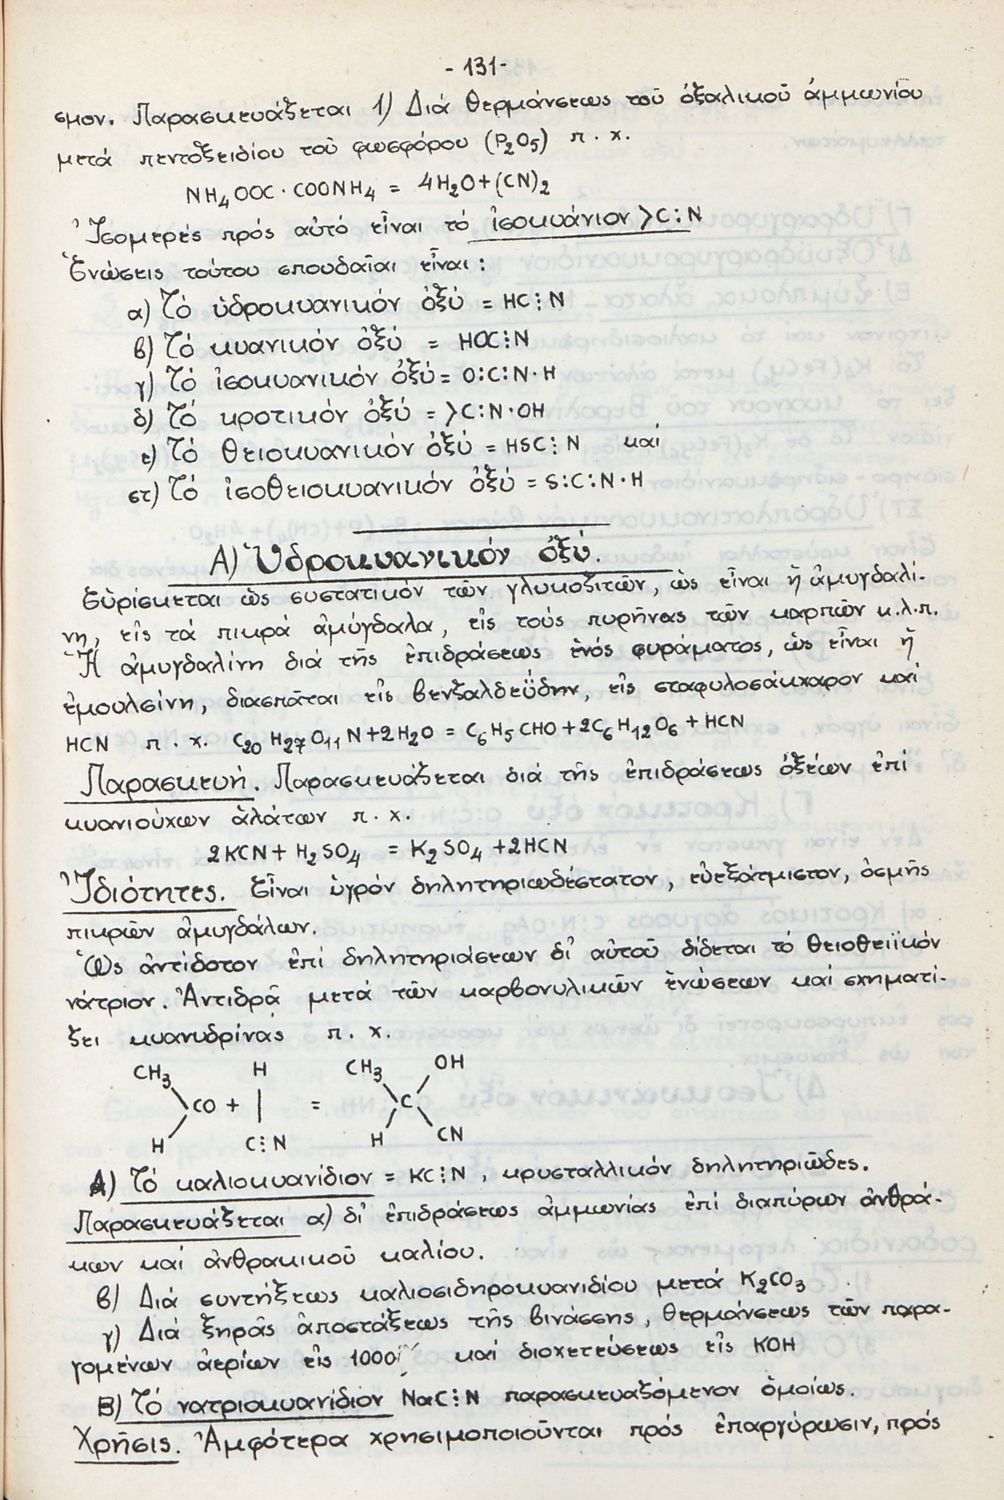 - 131 -
σμον. Παρασκευάζεται 1) Διά θερμάνσεως τοῦ ὀξαλικοῦ ἀμμωνίου
μετά πεντοξειδίου τοῦ φωσφόρου (P₂O₅) π.χ.
NH₄OOC·COONH₄ = 4H₂O+(CN)₂
Ἰσομερές πρός αὐτό εἶναι τό ἰσοκυάνιον >C⋮N
Ἑνώσεις τούτου σπουδαῖαι εἶναι:
α) Τό ὑδροκυανικόν ὀξύ = HC⋮N
β) Τό κυανικόν ὀξύ = HOC⋮N
γ) Τό ἰσοκυανικόν ὀξύ = O:C:N·H
δ) Τό κροτικόν ὀξύ = >C:N·OH
ε) Τό θειοκυανικόν ὀξύ = HSC⋮N καί
στ) Τό ἰσοθειοκυανικόν ὀξύ = S:C:N·H
Α) Ὑδροκυανικόν ὀξύ.
Εὑρίσκεται ὡς συστατικόν τῶν γλυκοζιτῶν, ὡς εἶναι ἡ ἀμυγδαλί-
νη, εἰς τά πικρά ἀμύγδαλα, εἰς τούς πυρῆνας τῶν καρπῶν κ.λ.π.
Ἡ ἀμυγδαλίνη διά τῆς ἐπιδράσεως ἑνός φυράματος, ὡς εἶναι ἡ
ἐμουλσίνη, διασπᾶται εἰς βενζαλδεΰδην, εἰς σταφυλοσάκχαρον καί
HCN π.χ. C₂₀H₂₇O₁₁N+2H₂O = C₆H₅CHO+2C₆H₁₂O₆+HCN
Παρασκευή. Παρασκευάζεται διά τῆς ἐπιδράσεως ὀξέων ἐπί
κυανιούχων ἁλάτων π.χ.
2KCN+H₂SO₄ = K₂SO₄+2HCN
Ἰδιότητες. Εἶναι ὑγρόν δηλητηριωδέστατον, εὐεξάτμιστον, ὀσμῆς
πικρῶν ἀμυγδάλων.
Ὡς ἀντίδοτον ἐπί δηλητηριάσεων δι' αὐτοῦ δίδεται τό θειοθειϊκόν
νάτριον. Ἀντιδρᾶ μετά τῶν καρβονυλικῶν ἑνώσεων καί σχηματί-
ζει κυανυδρίνας π.χ.
CH₃ H CH₃ OH
CO + | = C
H C⋮N H CN
Α) Τό καλιοκυανίδιον = KC⋮N, κρυσταλλικόν δηλητηριῶδες.
Παρασκευάζεται α) δι' ἐπιδράσεως ἀμμωνίας ἐπί διαπύρων ἀνθρά-
κων καί ἀνθρακικοῦ καλίου.
β) Διά συντήξεως καλιοσιδηροκυανιδίου μετά K₂CO₃
γ) Διά ξηρᾶς ἀποστάξεως τῆς βινάσσης, θερμάνσεως τῶν παρα-
γομένων ἀερίων εἰς 1000 καί διοχετεύσεως εἰς KOH
Β) Τό νατριοκυανίδιον NaC⋮N παρασκευαζόμενον ὁμοίως.
Χρῆσις. Ἀμφότερα χρησιμοποιοῦνται πρός ἐπαργύρωσιν, πρός